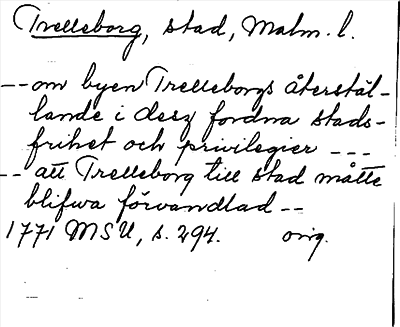 Trelleborg, stad, Malm. l.
-- om byen Trelleborgs återstäl-
lande i desz fordna stads-
frihet och privilegier ---
-- att Trelleborg till stad måtte
blifwa förvandlad --
1771 MSU, s. 294. orig.